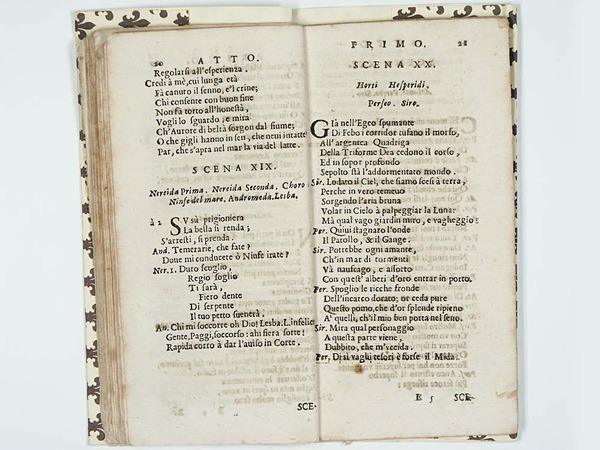 20 ATTO.
Regolarsi all'esperienza.
Credi à mè, cui lunga età
Fà canuto il senno, e'l crine;
Chi consente con buon fine
Non fà torto all'honestà,
Vogli lo sguardo, e mira
Ch'Autore di beltà sorgon dal fiume;
O che gigli hanno in sen, che neui intatte
Par, che s'apra nel mar la via del latte.
SCENA XIX.
Nereida Prima. Nereida Seconda. Choro
Ninfe del mare. Andromeda. Lesba.
à 2 SV sù prigioniera
La bella si renda;
S'arresti, si prenda.
And. Temerarie, che fate?
Doue mi conducete ò Ninfe irate?
Ner. 1. Duro scoglio,
Regio soglio
Ti sarà,
Fiero dente
Di serpente
Il tuo petto suenerà.
An. Chi mi soccorre oh Dio! Lesba. L'infelice
Gente, Paggi, soccorso: ahi fiera sorte!
Rapida corro à dar l'auiso in Corte.
SCE-
PRIMO. 21
SCENA XX.
Horti Hesperidi.
Perseo. Siro.
GIà nell'Egeo spumante
Di Febo i corridor tufano il morso,
All'argentea Quadriga
Della Triforme Dea cedono il corso,
Ed in sopor profondo
Sepolto stà l'addormentato mondo.
Sir. Lodato il Ciel, che siamo scesi à terra,
Perche in vero temeuo
Sorgendo l'aria bruna
Volar in Cielo à palpeggiar la Luna:
Mà qual vago giardin miro, e vagheggio?
Per. Quiui stagnaro l'onde
Il Patollo, & il Gange.
Sir. Potrebbe ogni amante,
Ch'in mar di tormenti
Và naufrago, e assorto
Con quest'alberi d'oro entrar in porto.
Per. Spoglio le ricche fronde
Dell'incarco dorato; ne ceda pure
Questo pomo, che d'or splende ripieno
A' quelli, ch'il mio ben porta nel seno.
Sir. Mira qual personaggio
A questa parte viene,
Dubbito, che m'vccida.
Per. Di sì vaghi tesori è forse il Mida.
E 5 SCE-